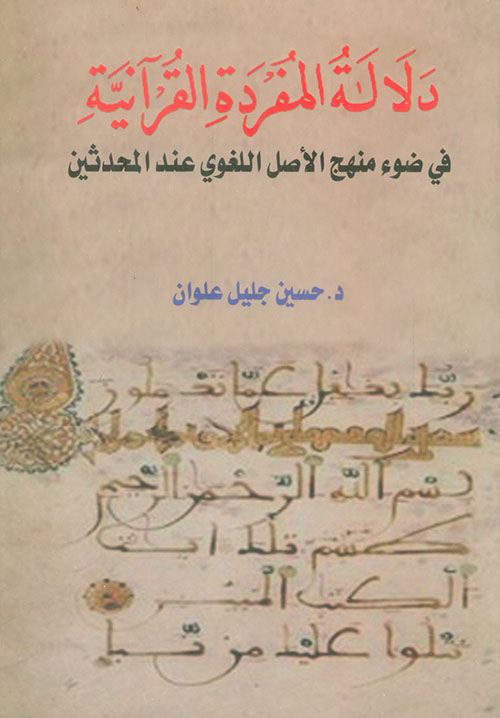 دَلَالَةُ المُفْرَدَةِ القُرْآنِيَّةِ
في ضوء منهج الأصل اللغوي عند المحدثين
د. حسين جليل علوان
ربك بغفل عما تعملون
بسم الله الرحمن الرحيم
طسم تلك ايت
الكتب المبين
نتلوا عليك من نبا